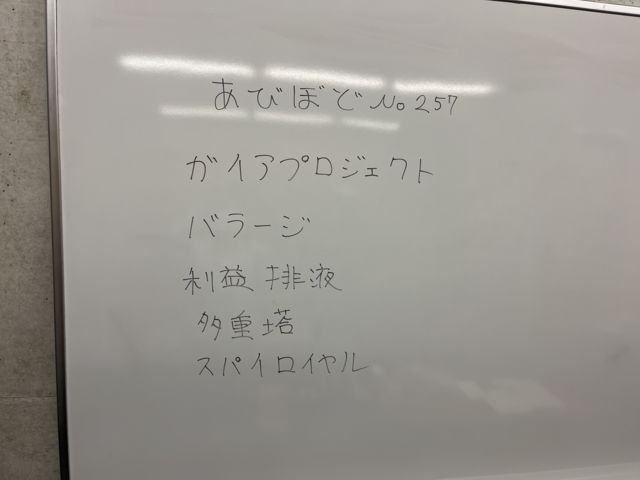 あびぼど No 257
ガイアプロジェクト
バラージ
利益 排液
多重塔
スパイロイヤル